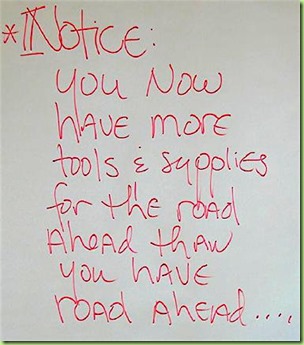 *I Notice:
you Now
have more
tools & supplies
for the road
Ahead than
you have
road Ahead....